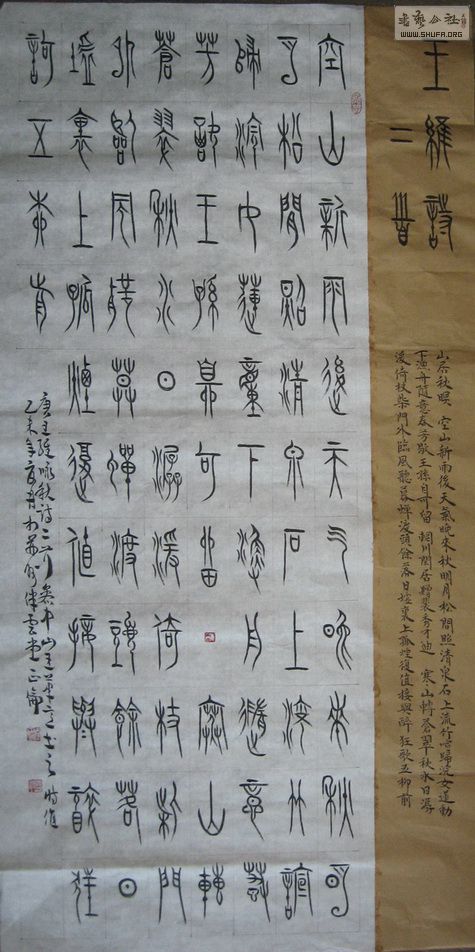 書藝公社
WWW.SHUFA.ORG
王維詩
二首
山居秋暝 空山新雨後天氣晚來秋明月松間照清泉石上流竹喧歸浣女蓮動
下漁舟隨意春芳歇王孫自可留 輞川閒居贈裴秀才迪 寒山轉蒼翠秋水日潺
湲倚杖柴門外臨風聽暮蟬渡頭餘落日墟裏上孤煙復值接輿醉狂歌五柳前
空山新雨後天气晚來秋明
月松間照清泉石上流竹諠
歸浣女蓮動下漁舟隨意春
芳歇王孫自可留寒山轉
蒼翠秋水日潺湲倚杖柴門
外臨風聽暮蟬渡頭餘落日
墟裏上孤煙復值接輿醉狂
歌五柳前
唐王維咏秋詩二首
乙未年夏月